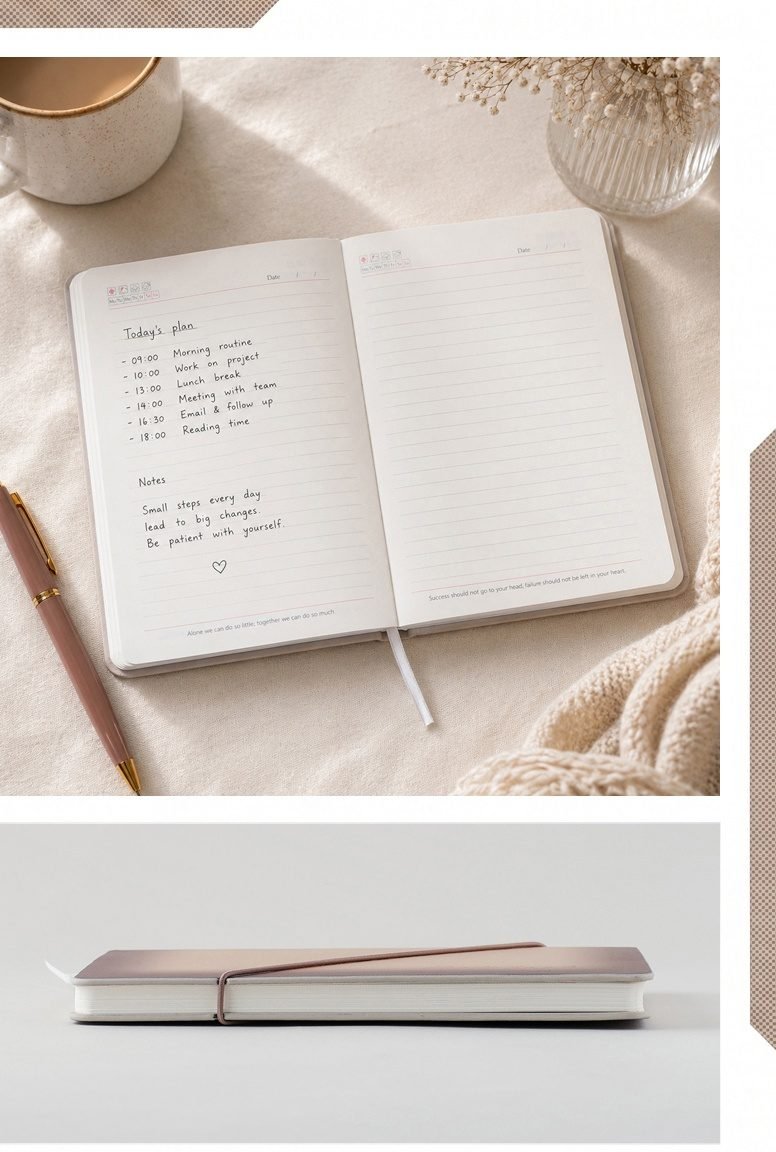 Date / /
Mo Tu We Th Fr Sa Su
Today's plan
- 09:00 Morning routine
- 10:00 Work on project
- 13:00 Lunch break
- 14:00 Meeting with team
- 16:30 Email & follow up
- 18:00 Reading time
Notes
Small steps every day
lead to big changes.
Be patient with yourself.
♡
Alone we can do so little; together we can do so much.
Date / /
Mo Tu We Th Fr Sa Su
Success should not go to your head, failure should not be left in your heart.